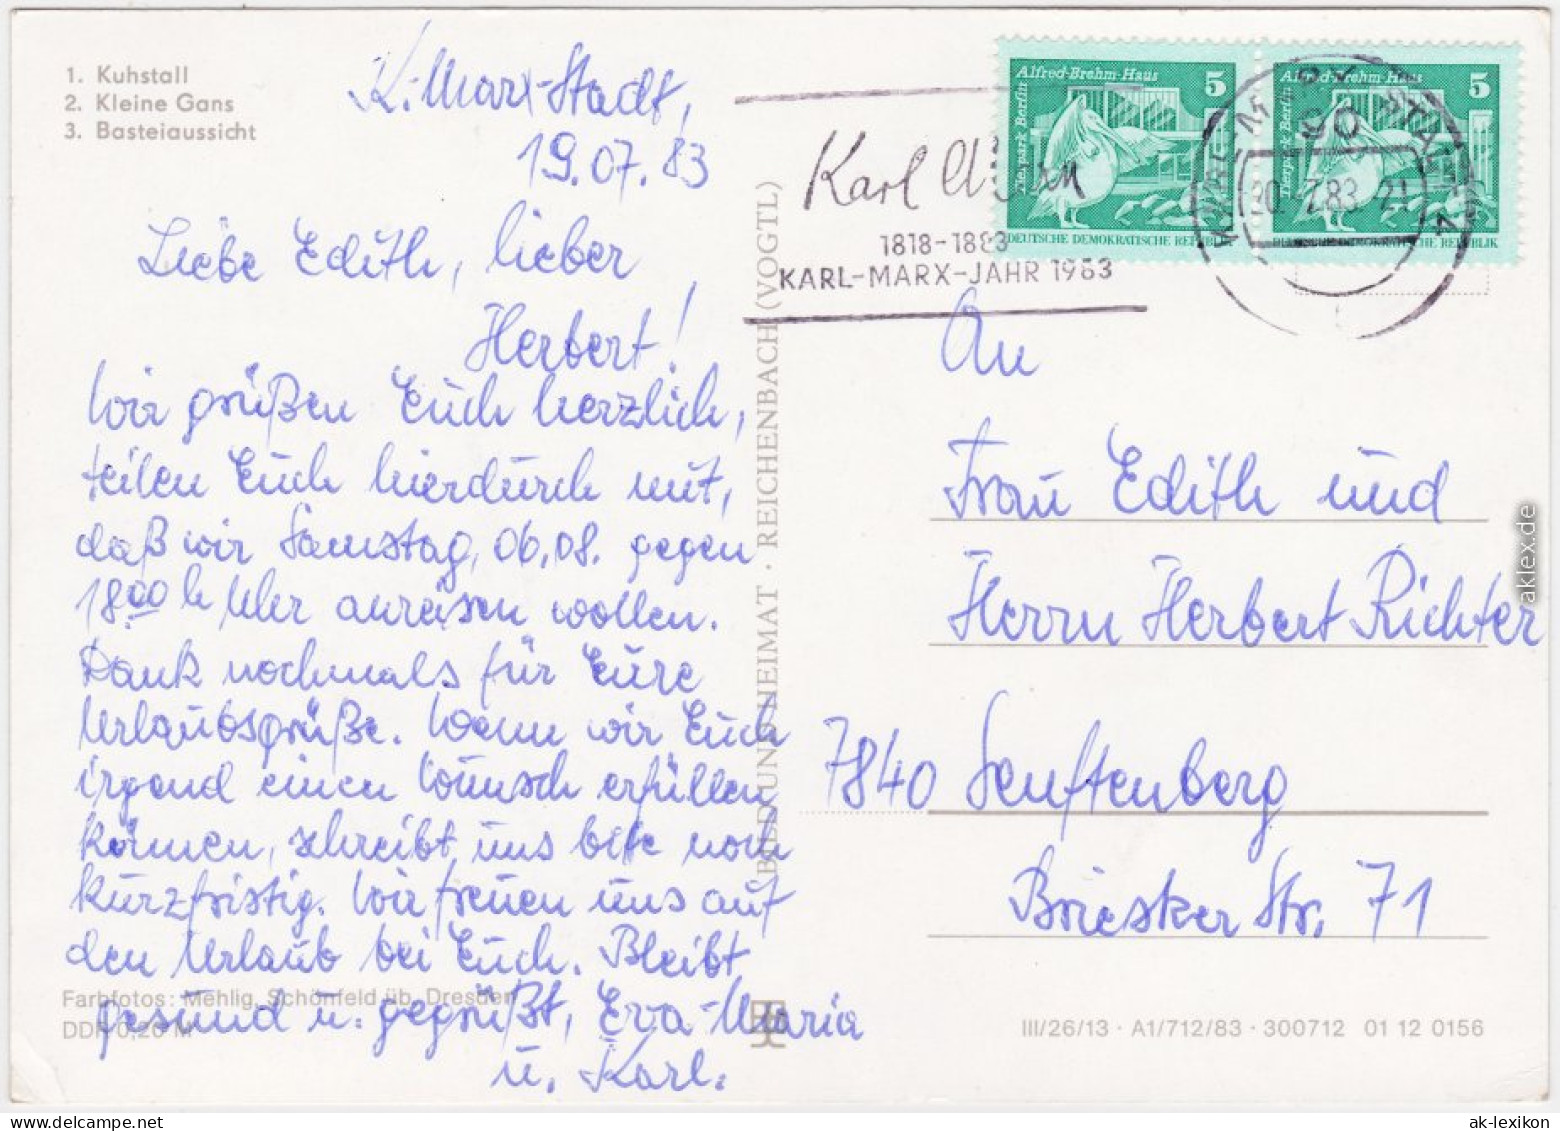 1. Kuhstall
2. Kleine Gans
3. Basteiaussicht
K.-Marx-Stadt,
19.07.83
Liebe Edith, lieber
Herbert!
Wir grüßen Euch herzlich,
teilen Euch hierdurch mit,
daß wir Samstag, 06.08. gegen
18.00 h Uhr anreisen wollen.
Dank nochmals für Eure
Urlaubsgrüße. Wenn wir Euch
irgend einen Wunsch erfüllen
können, schreibt uns bitte noch
kurzfristig. Wir freuen uns auf
den Urlaub bei Euch. Bleibt
gesund u. gegrüßt, Eva-Maria
u. Karl.
Farbfotos: Mehlig, Schönfeld üb. Dresden
DDR 0,20 M
BILD UND HEIMAT · REICHENBACH (VOGTL)
Karl Marx
1818-1883
KARL-MARX-JAHR 1983
Alfred-Brehm-Haus 5
Tierpark Berlin
DEUTSCHE DEMOKRATISCHE REPUBLIK
Alfred-Brehm-Haus 5
Tierpark Berlin
DEUTSCHE DEMOKRATISCHE REPUBLIK
90
An
Frau Edith und
Herrn Herbert Richter
7840 Senftenberg
Briesker Str. 71
III/26/13 · A1/712/83 · 300712 01 12 0156
aklex.de
ak-lexikon